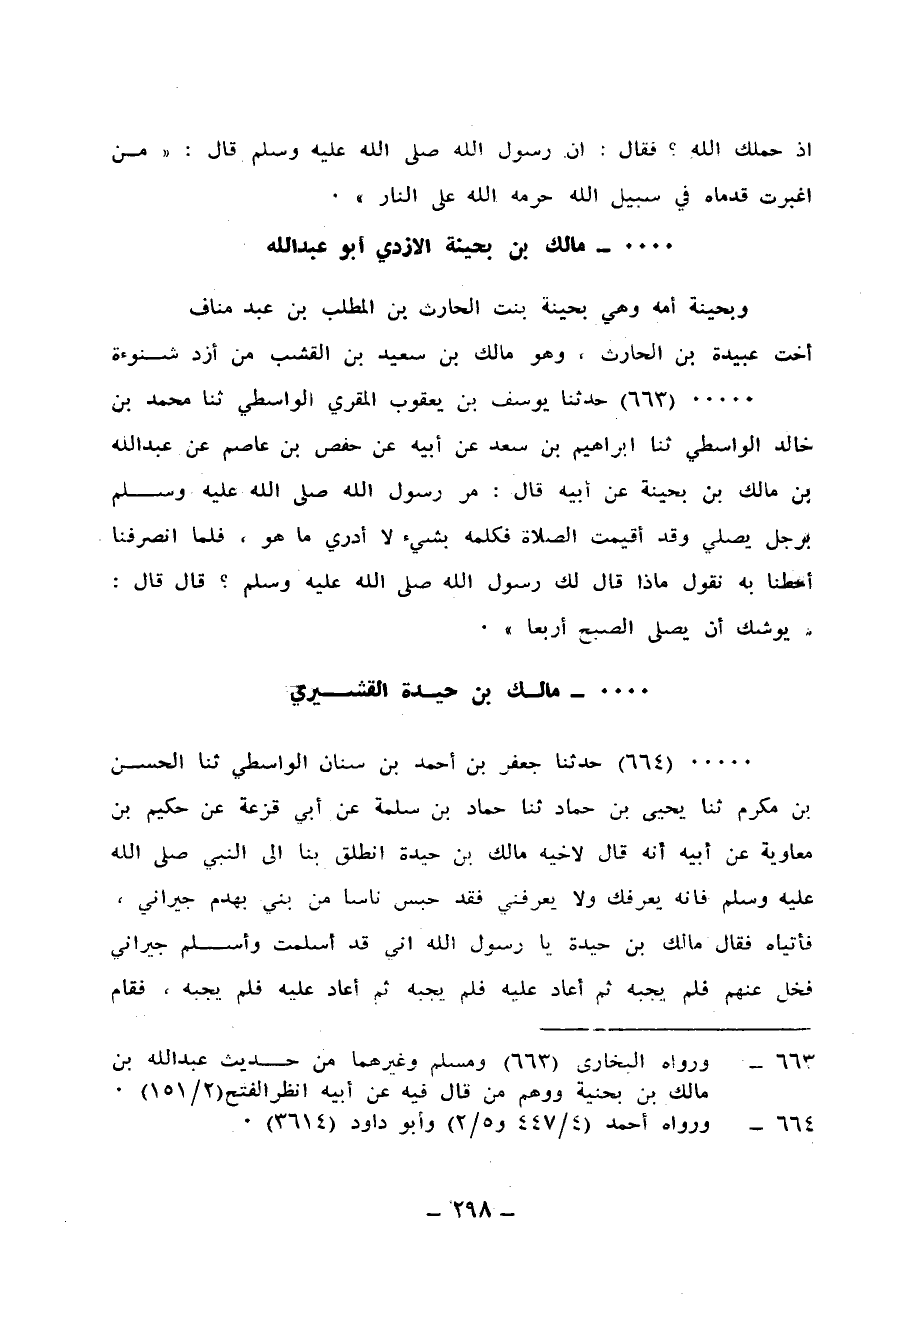 اذ حملك الله ؟ فقال : ان رسول الله صلى الله عليه وسلم قال : « مـن
اغبرت قدماه في سبيل الله حرمه الله على النار » ٠
٠٠٠٠ ـ مالك بن بحينة الازدي أبو عبدالله
وبحينة أمه وهي بحينة بنت الحارث بن المطلب بن عبد مناف
أخت عبيدة بن الحارث ، وهو مالك بن سعيد بن القشب من أزد شـنوءة
٠٠٠٠٠ (٦٦٣) حدثنا يوسف بن يعقوب المقري الواسطي ثنا محمد بن
خالد الواسطي ثنا ابراهيم بن سعد عن أبيه عن حفص بن عاصم عن عبدالله
بن مالك بن بحينة عن أبيه قال : مر رسول الله صلى الله عليه وسـلم
برجل يصلي وقد أقيمت الصلاة فكلمه بشيء لا أدري ما هو ، فلما انصرفنا
أحطنا به نقول ماذا قال لك رسول الله صلى الله عليه وسلم ؟ قال قال :
« يوشك أن يصلى الصبح أربعا » ٠
٠٠٠٠ ـ مالـك بن حيـدة القشـيري
٠٠٠٠٠ (٦٦٤) حدثنا جعفر بن أحمد بن سنان الواسطي ثنا الحسـن
بن مكرم ثنا يحيى بن حماد ثنا حماد بن سلمة عن أبي قزعة عن حكيم بن
معاوية عن أبيه أنه قال لاخيه مالك بن حيدة انطلق بنا الى النبي صلى الله
عليه وسلم فانه يعرفك ولا يعرفني فقد حبس ناسا من بني بهدم جيراني ،
فأتياه فقال مالك بن حيدة يا رسول الله اني قد أسلمت وأسـلم جيراني
فخل عنهم فلم يجبه ثم أعاد عليه فلم يجبه ثم أعاد عليه فلم يجبه ، فقام
٦٦٣ ـ ورواه البخارى (٦٦٣) ومسلم وغيرهما من حـديث عبدالله بن
مالك بن بحنية ووهم من قال فيه عن أبيه انظرالفتح(١٥١/٢) ٠
٦٦٤ ـ ورواه أحمد (٤٤٧/٤ و٢/٥) وأبو داود (٣٦١٤) ٠
ـ ٢٩٨ ـ